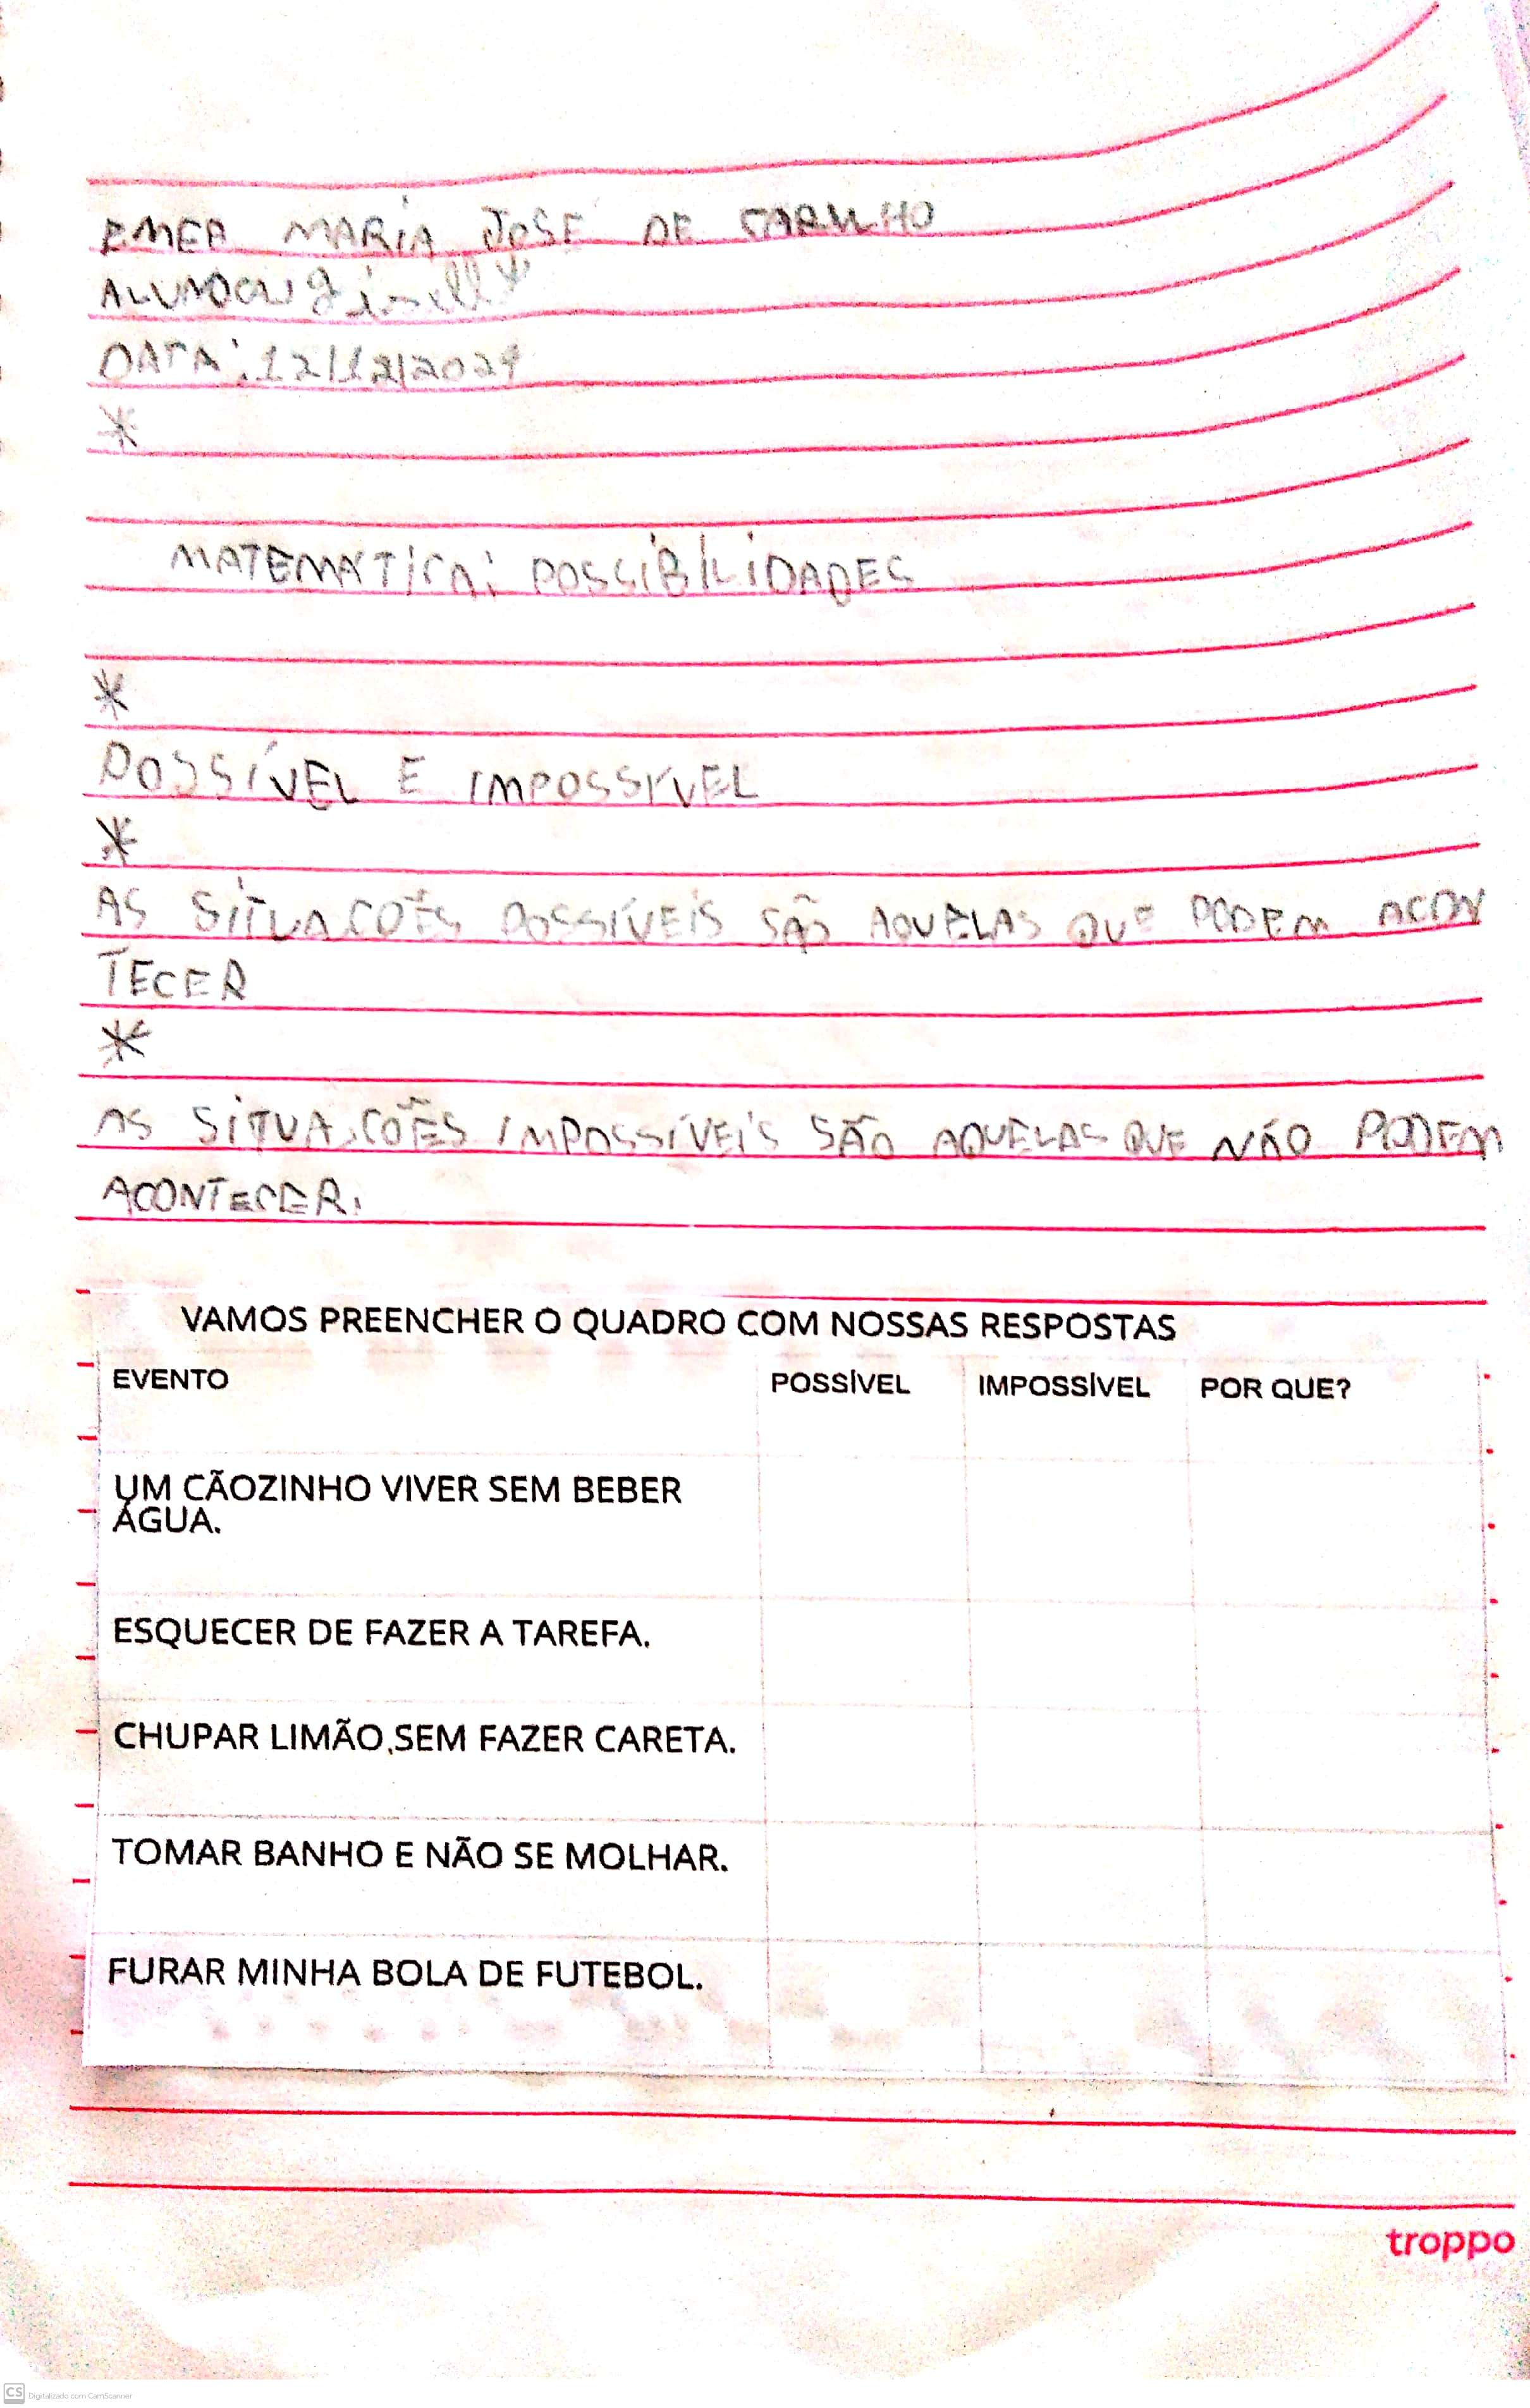 EMEF MARIA JOSÉ DE CARVALHO
DATA: 12/12/2024
*
MATEMÁTICA: POSSIBILIDADES
*
POSSÍVEL E IMPOSSÍVEL
*
AS SITUAÇÕES POSSÍVEIS SÃO AQUELAS QUE PODEM ACON
TECER
*
AS SITUAÇÕES IMPOSSÍVEIS SÃO AQUELAS QUE NÃO PODEM
ACONTECER.
VAMOS PREENCHER O QUADRO COM NOSSAS RESPOSTAS
EVENTO POSSÍVEL IMPOSSÍVEL POR QUE?
UM CÃOZINHO VIVER SEM BEBER
ÁGUA.
ESQUECER DE FAZER A TAREFA.
CHUPAR LIMÃO,SEM FAZER CARETA.
TOMAR BANHO E NÃO SE MOLHAR.
FURAR MINHA BOLA DE FUTEBOL.
troppo
CS Digitalizado com CamScanner